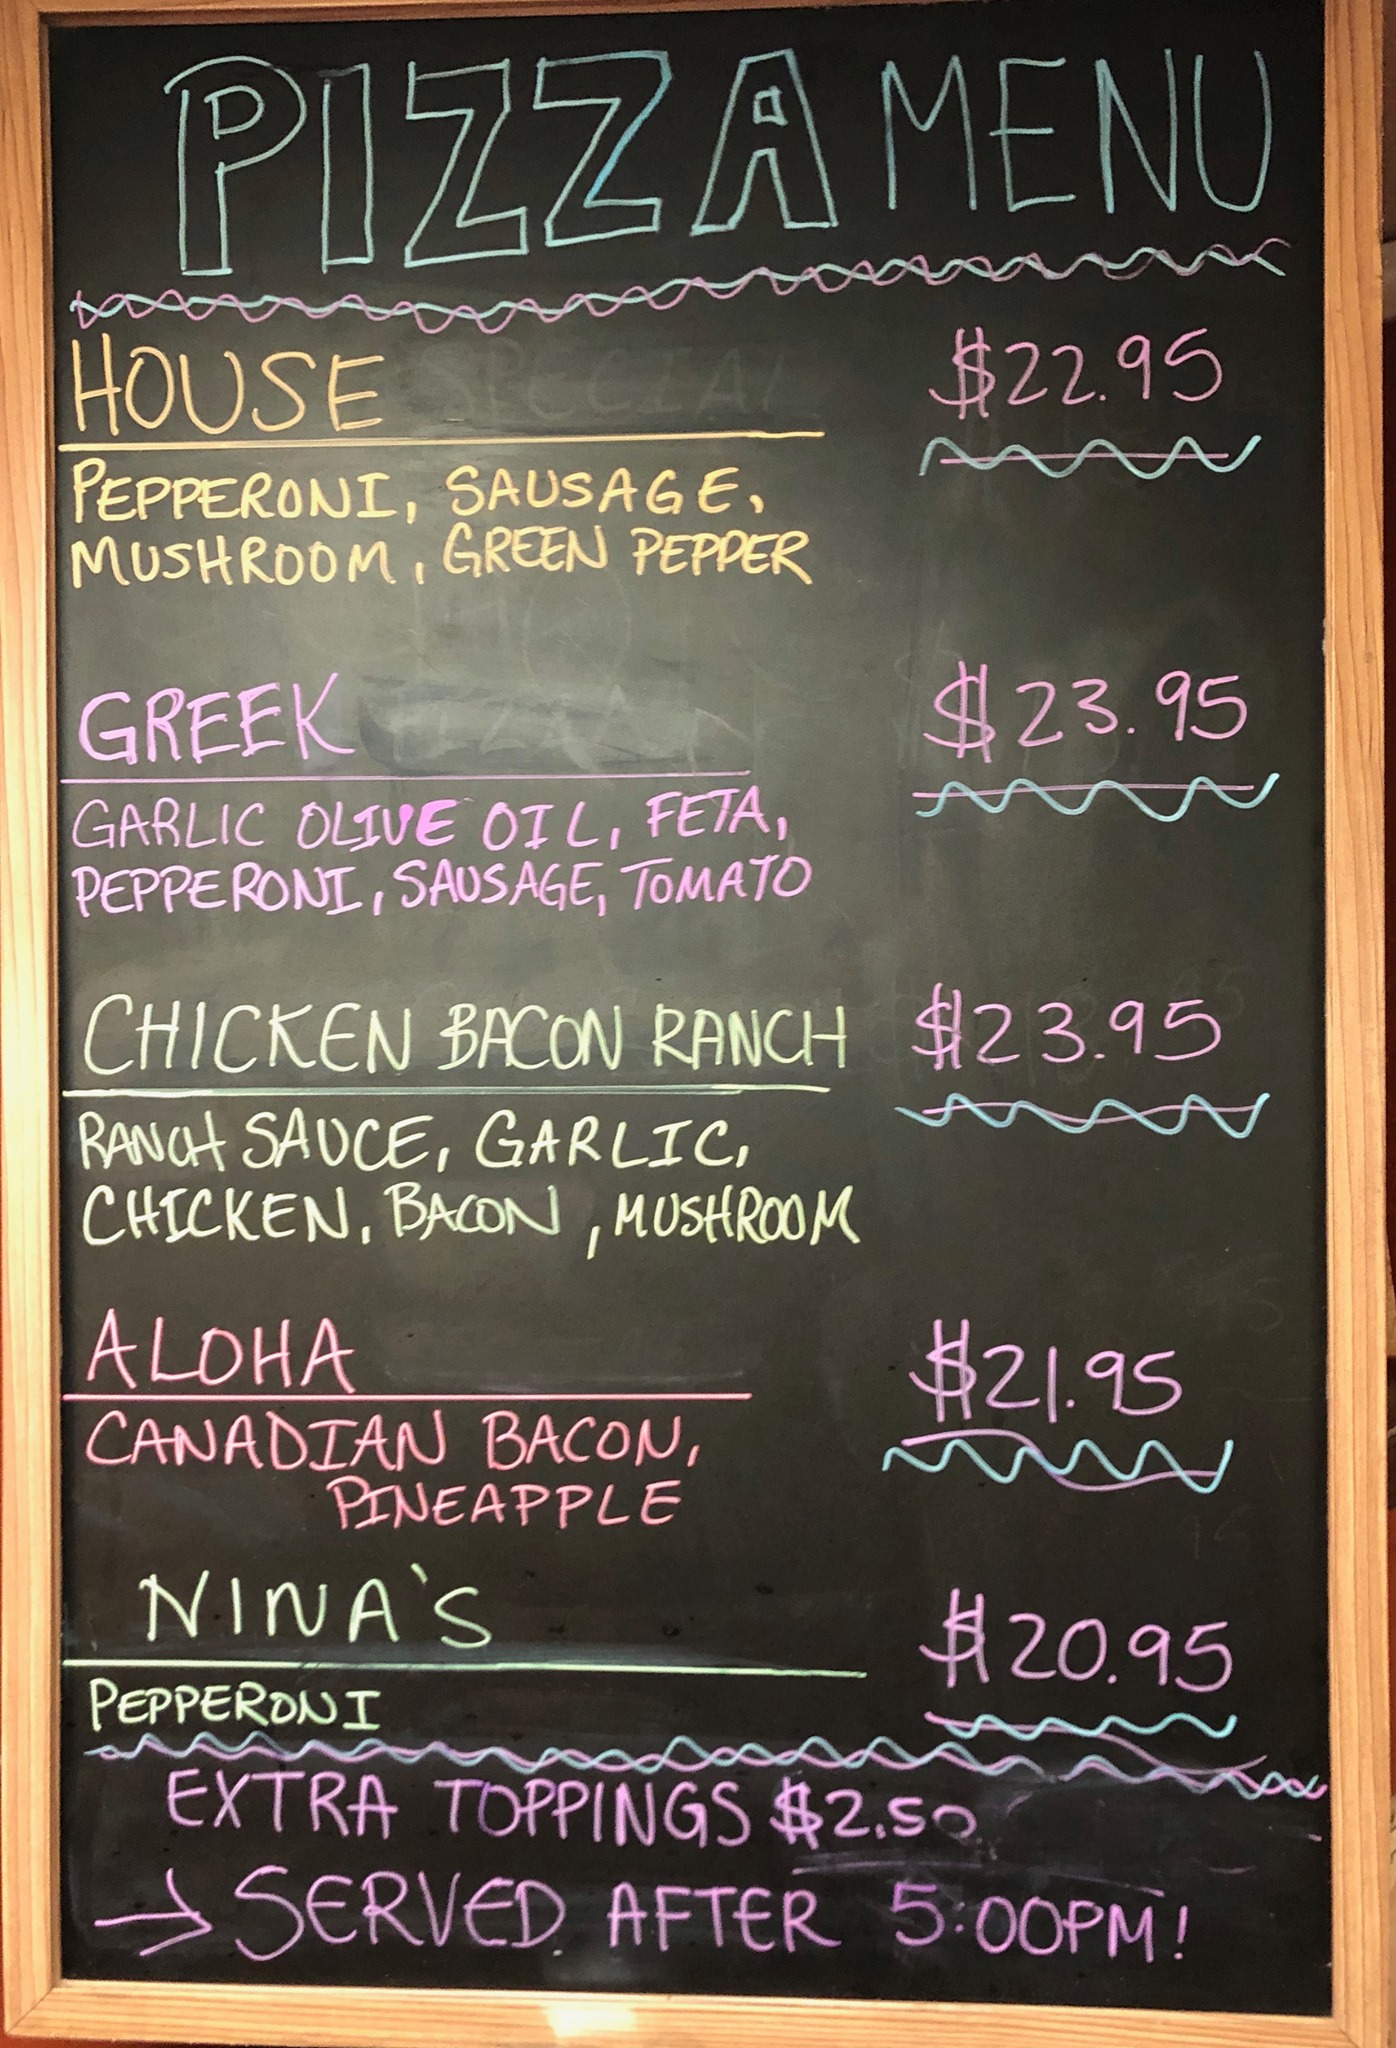 PIZZA MENU
HOUSE $22.95
PEPPERONI, SAUSAGE,
MUSHROOM, GREEN PEPPER
GREEK $23.95
GARLIC OLIVE OIL, FETA,
PEPPERONI, SAUSAGE, TOMATO
CHICKEN BACON RANCH $23.95
RANCH SAUCE, GARLIC,
CHICKEN, BACON, MUSHROOM
ALOHA $21.95
CANADIAN BACON,
PINEAPPLE
NINA'S $20.95
PEPPERONI
EXTRA TOPPINGS $2.50
→ SERVED AFTER 5:00PM!